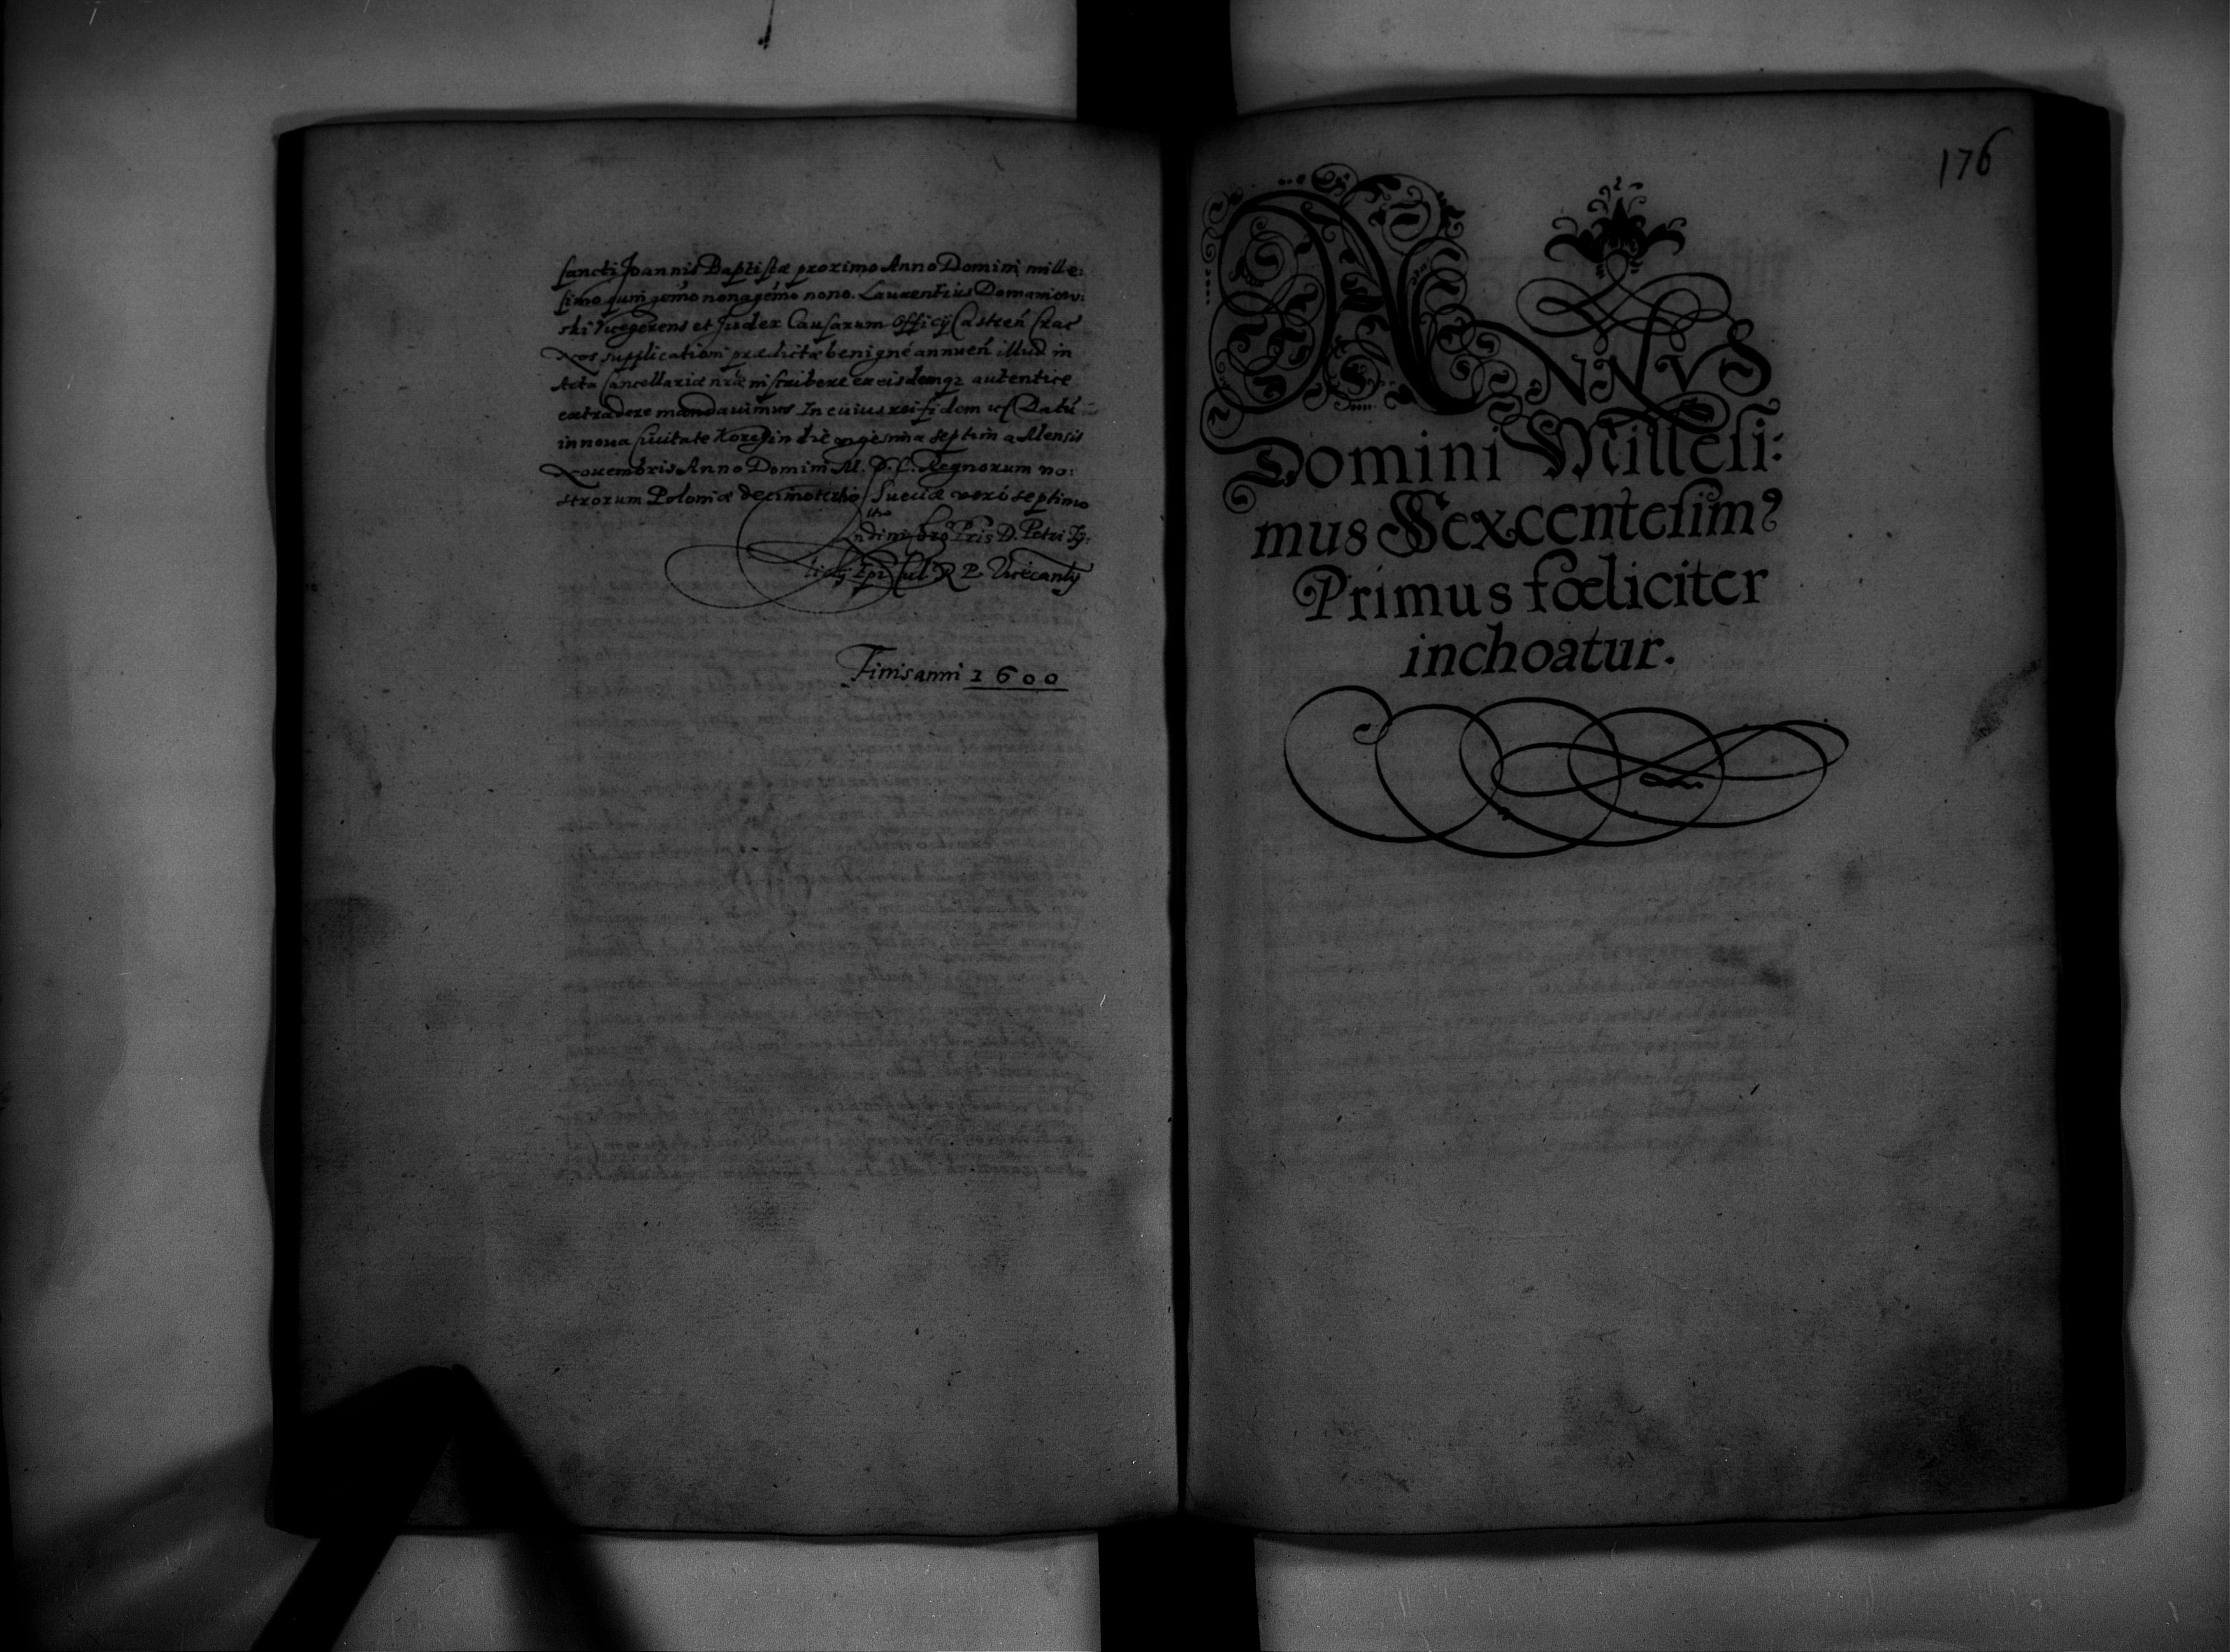 sancti Joannis Baptistæ proximo Anno Domini mille:
simo quingemo nonagemo nono. Laurentius
ski Vicegerens et Judex Causarum Officij Castren Crac
Nos supplicationi prædictæ benigné annuen illud in
Acta Cancellariæ nræ inscribere ex eisdemq3 autentice
extradere mandauimus In cuius rei fidem Datũ
in noua Ciuitate Korczin die septima Mensis
Nouembris Anno Domini M. D. C. Regnorum no:
strorum Poloniæ decimotertio Sueciæ veró septimo
D. Petri Ty:
licij Epi Cul R P. Vicecanlÿ
Finis anni 1600
176
ANNVS
Domini Millesi:
mus Sexcentesim9
Primus fœliciter
inchoatur.